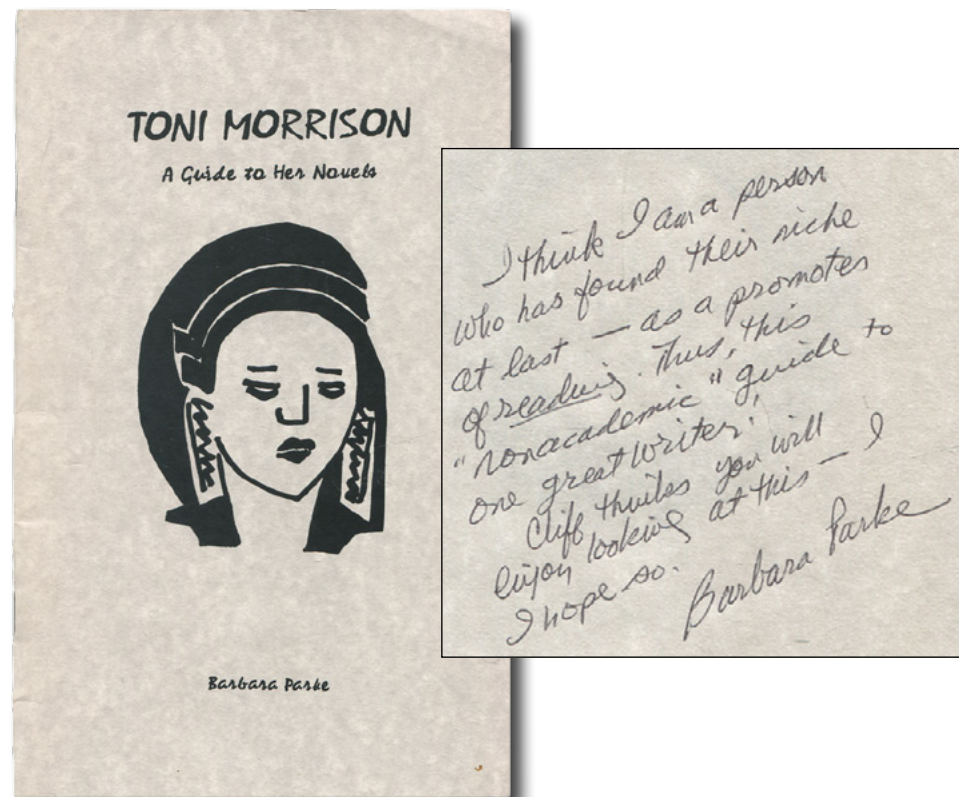 TONI MORRISON
A Guide to Her Novels
Barbara Parke
I think I am a person
who has found their niche
at last — as a promoter
of reading. Thus, this
"nonacademic" guide to
one great writer.
Cliff thinks you will
enjoy looking at this — I
I hope so.
Barbara Parke